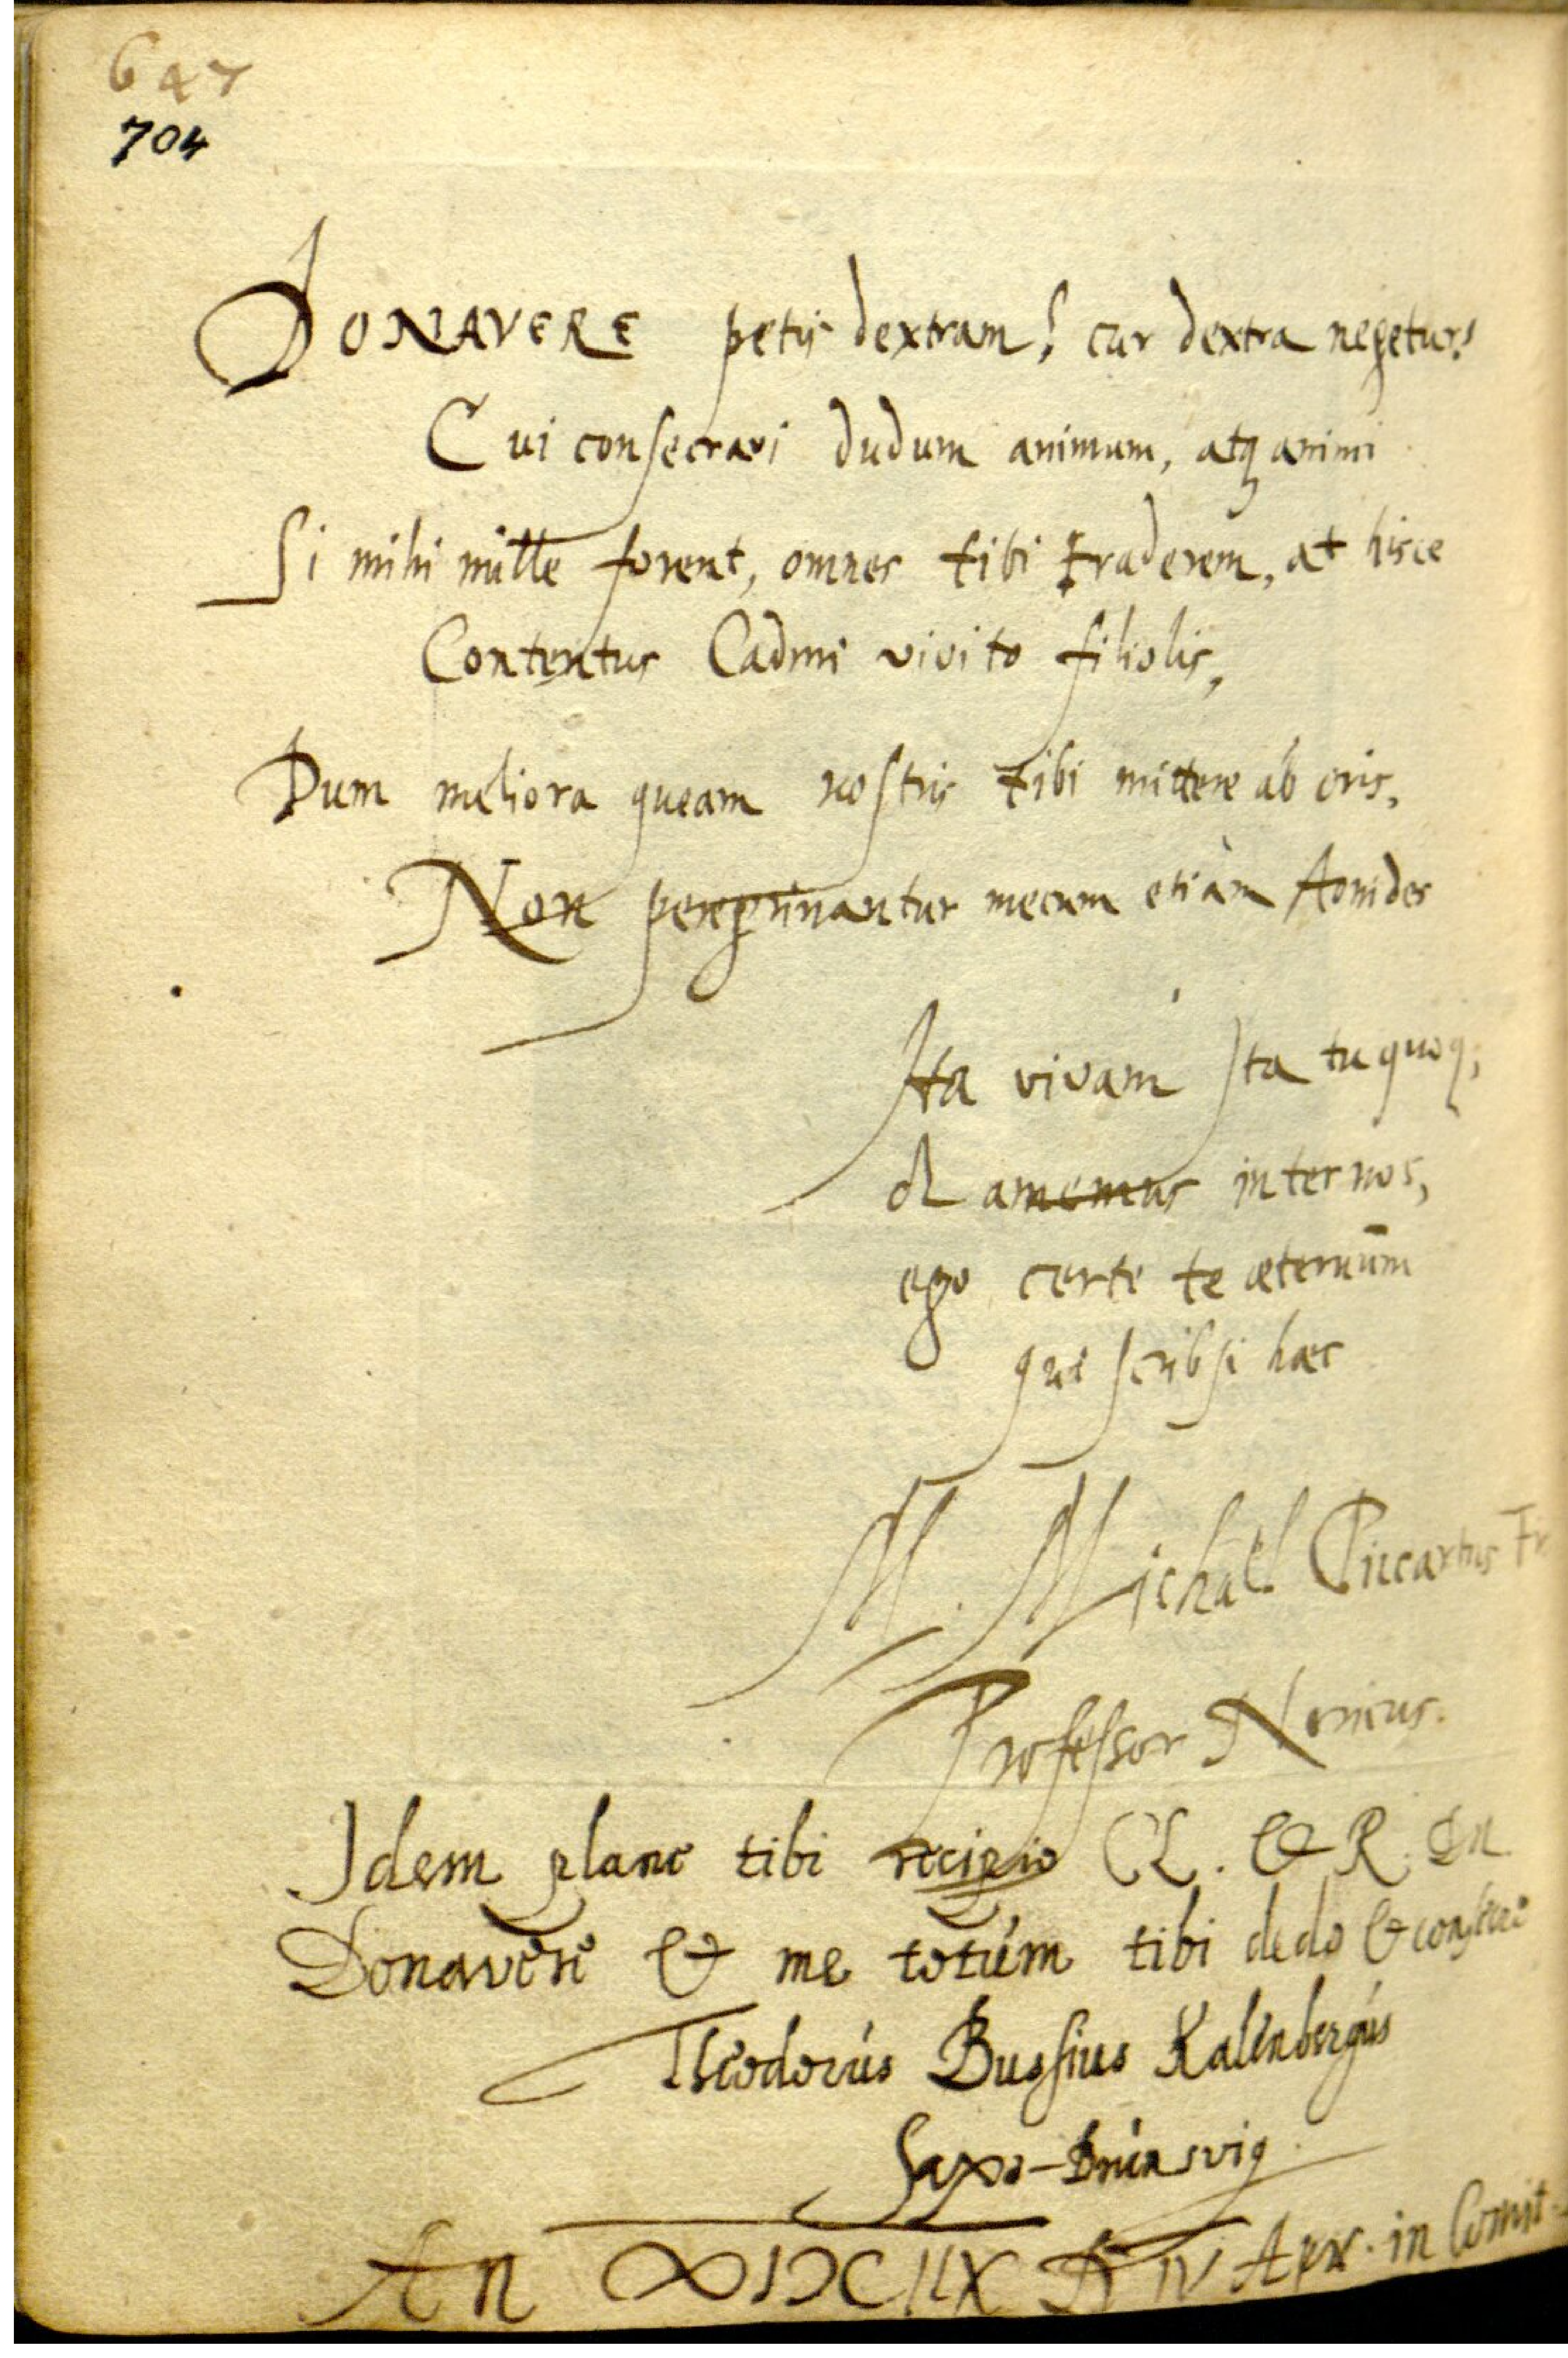 647
704
DONAVERE petis dextram? cur dextra negetur?
Cui consecravi dudum animum, atq animi
Si mihi mille forent, omnes tibi traderem, at hisce
Contentus Cadmi vivito filiolis,
Dum meliora queam nostris tibi mittere ab oris.
Non peregrinantur mecum etiàm Aonides
Ita vivam Ita tu quoq;
& amemus inter nos,
ego certe te æternūm
qui scribsi hæc
M. Michaël Piccartus Fr
Professor Noricus.
Idem plane tibi recipio CL. & R. Dn.
Donavere & me totum tibi dedo &
Theodorus Bussius Kalenbergus
Saxo-Brunsvig.
An ∞IƆCIIX D IV Apr. in Comit.